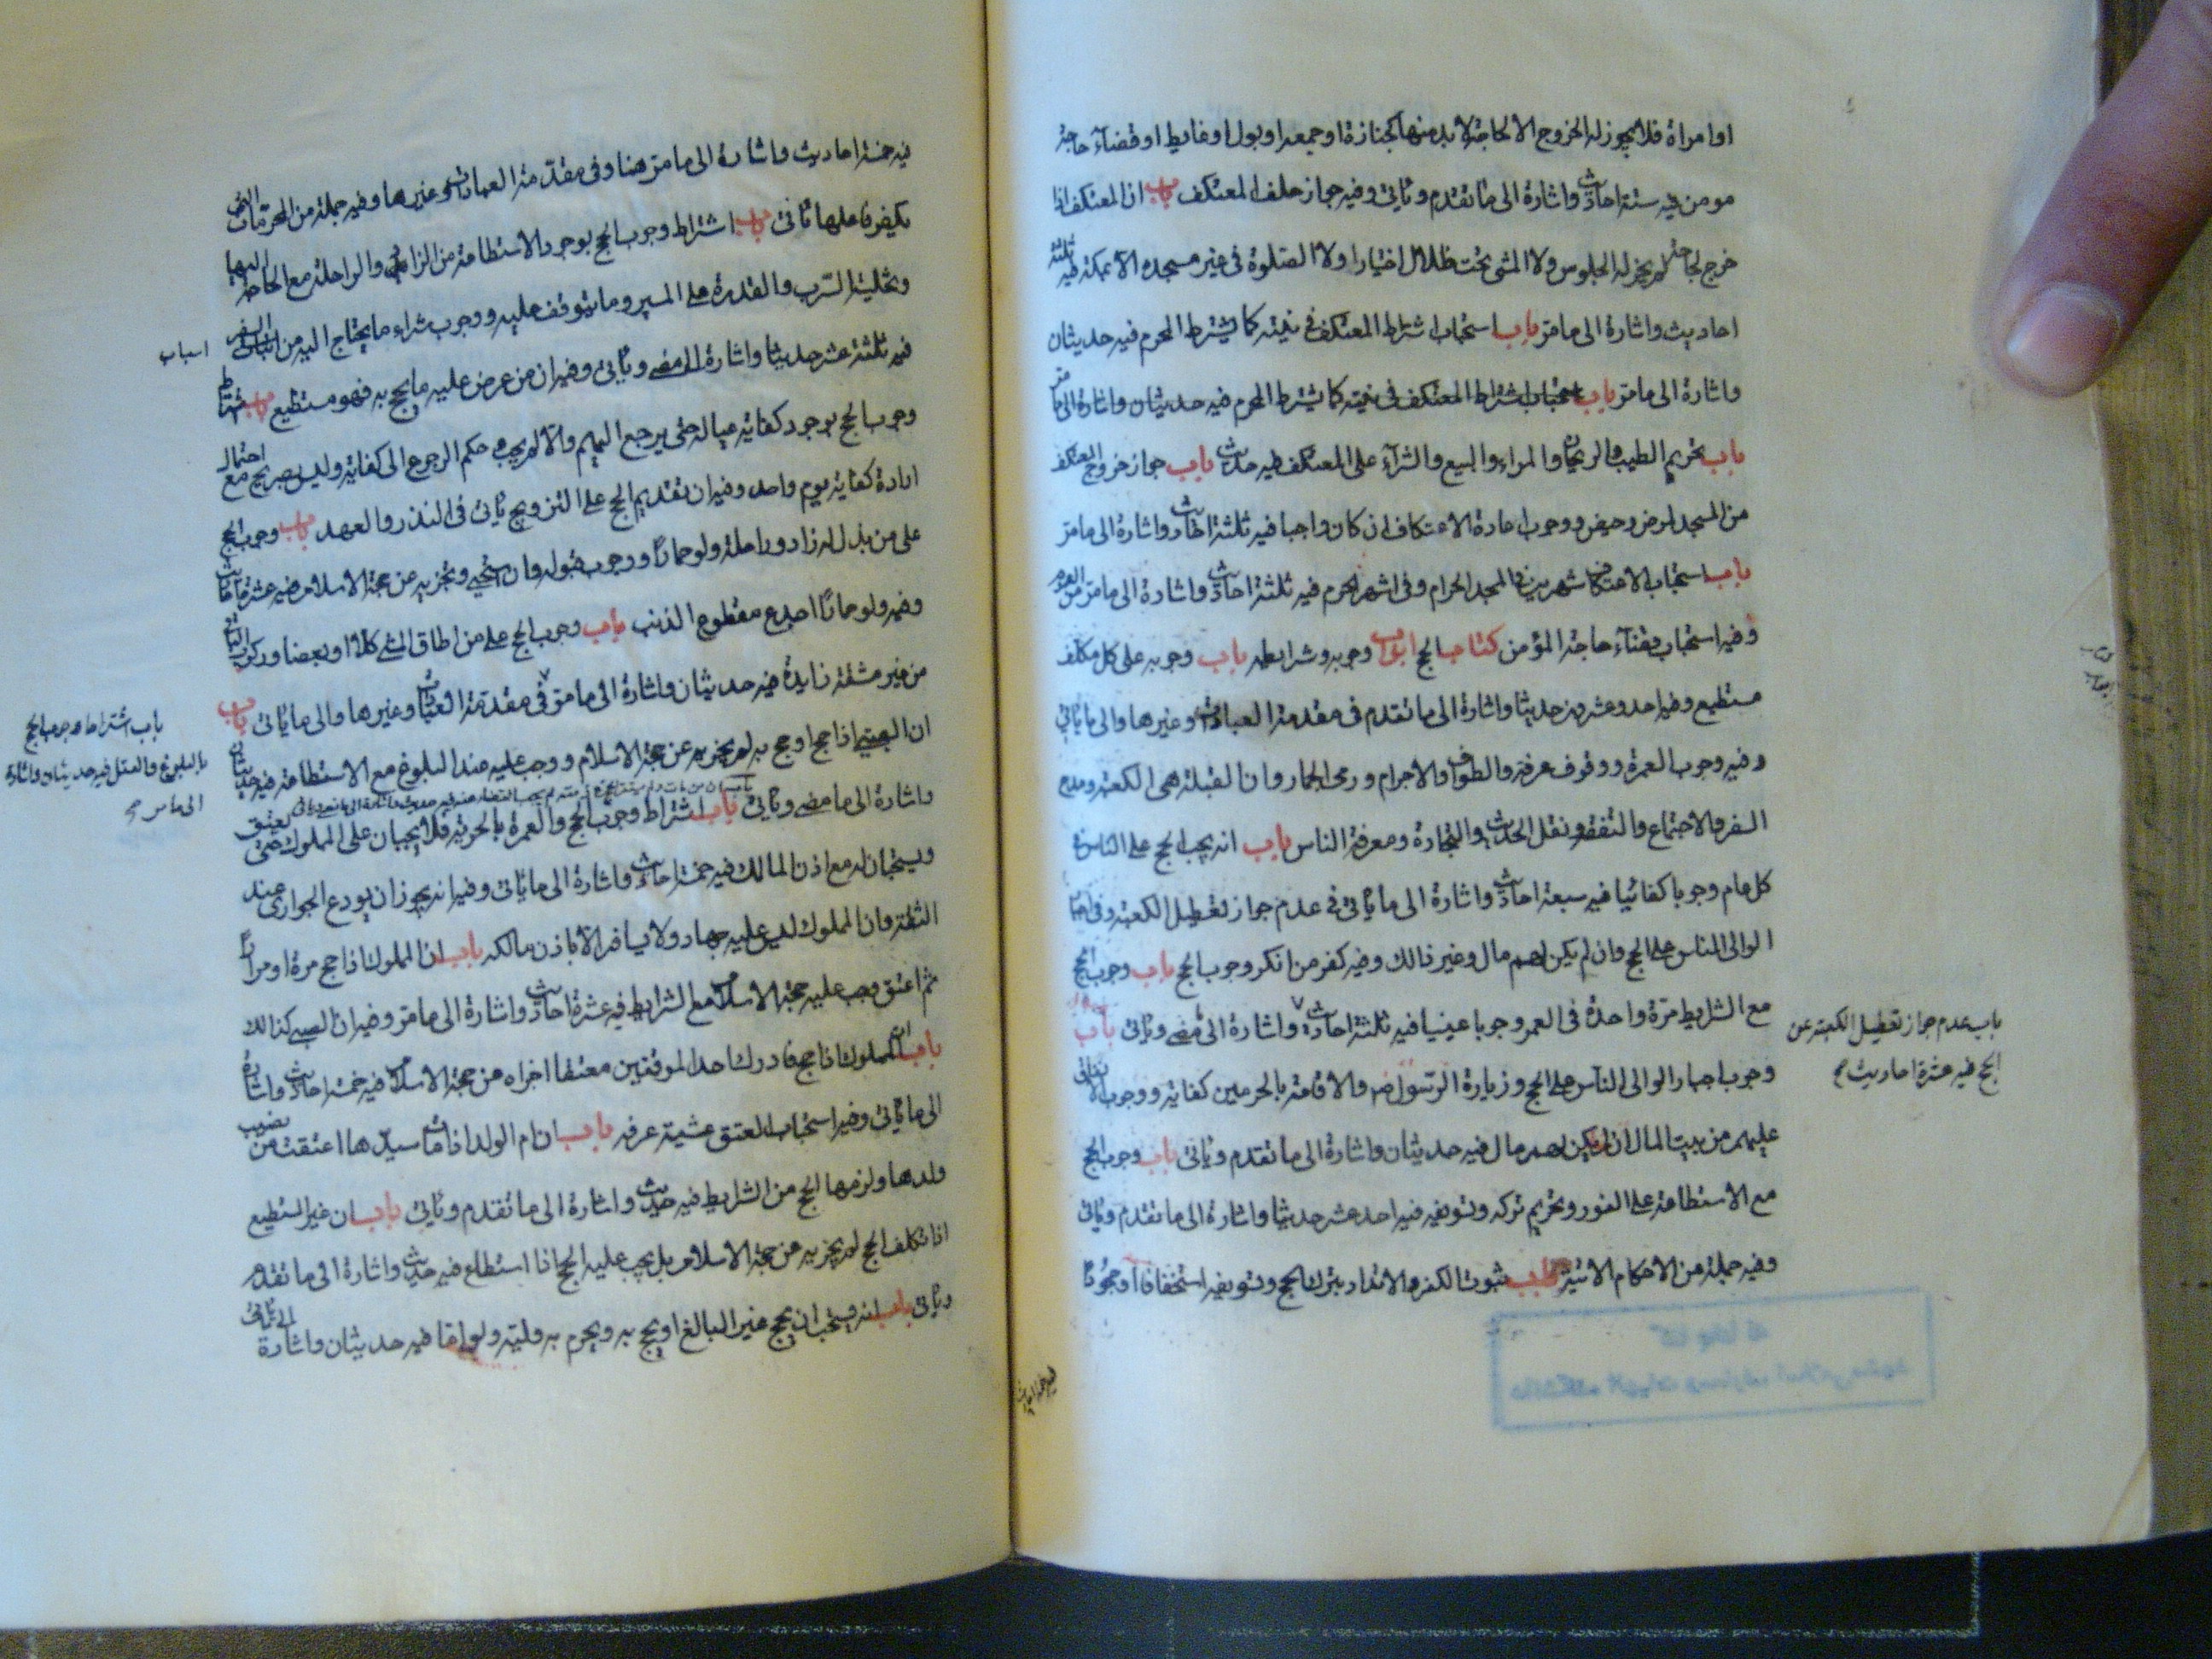 او امراة فلا يجوز له الخروج الا لحاجة لا بد منها كجنازة او جمعة او بول او غايط او قضآء حاجة
مومن فيه ستة احاديث واشارة الى ما تقدم و ياتى وفيه جواز حلف المعتكف باب ان المعتكف اذا
خرج لحاجة لم يجز له الجلوس ولا المشى تحت ظلال اختيارا ولا الصلوة فى غير مسجده الا بمكة فيه ثلثة
احاديث واشارة الى ما مر باب استحباب اشتراط المعتكف فى نيته كما يشترط المحرم فيه حديثان
واشارة الى ما مر باب استحباب اشتراط المعتكف فى نيته كما يشترط المحرم فيه حديثان واشارة الى ما مر
باب تحريم الطيب والريحان والمراء والبيع والشرآء على المعتكف فيه حديث باب جواز خروج المعتكف
من المسجد لمرض وحيض ووجوب اعادة الاعتكاف ان كان واجبا فيه ثلثة احاديث واشارة الى ما مر
باب استحباب الاعتكاف شهرين فى المسجد الحرام وفى اشهر الحرم فيه ثلثة احاديث واشارة الى ما مر من الصوم
وفيه استحباب قضآء حاجة المؤمن كتاب الحج ابواب وجوبه وشرايطه باب وجوبه على كل مكلف
مستطيع وفيه احد وعشرون حديثا واشارة الى ما تقدم فى مقدمة العبادات وغيرها والى ما ياتى
وفيه وجوب العمرة ووقوف عرفة والطواف والاحرام ورمى الجمار وان القبلة هى الكعبة ومدح
السفر والاجتماع والتفقه ونقل الحديث والتجارة ومعرفة الناس باب انه يجب الحج على الناس فى
كل عام وجوبا كفائيا فيه سبعة احاديث واشارة الى ما ياتى فى عدم جواز تعطيل الكعبة وفى اجبار
الوالى الناس على الحج وان لم يكن لهم مال وغير ذالك وفيه كفر من انكر وجوب الحج باب وجوب الحج
مع الشرايط مرة واحدة فى العمر وجوبا عينيا فيه ثلثة احاديث واشارة الى ما مضى وياتى باب
باب عدم جواز تعطيل الكعبة عن
الحج فيه عشرة احاديث صح
وجوب اجبار الوالى الناس على الحج وزيارة الرسول ص والاقامة بالحرمين كفاية ووجوب الانفاق
عليهم من بيت المال ان لم يكن لهم مال فيه حديثان واشارة الى ما تقدم وياتى باب وجوب الحج
مع الاستطاعة على الفور وتحريم تركه وتسويفه فيه احد عشر حديثا واشارة الى ما تقدم وياتى
وفيه جملة من الاحكام الاتية باب ثبوت الكفر والارتداد بترك الحج وتسويفه استخفافا او جحودا
فيه خمسة احاديث
فيه خمسة احاديث واشارة الى ما مر هنا وفى مقدمة العبادات وغيرها وفيه جملة من المحرمات التى
يكفر فاعلها ثانى باب اشتراط وجوب الحج بوجود الاستطاعة من الزاد والراحلة مع الحاجة اليها
وتخلية السرب والقدرة على المسير وما يتوقف عليه ووجوب شراء ما يحتاج اليه من اسباب السفر
اسباب
فيه ثلثة عشر حديثا واشارة الى ما مضى وياتى وفيه ان من عرض عليه ما يحج به فهو مستطيع باب اشتراط
وجوب الحج بوجود كفاية عياله حتى يرجع اليهم والا لم يجب وحكم الرجوع الى كفاية وليس بصريح مع احتمال
ارادة كفاية يوم واحد وفيه ان تقديم الحج على التزويج ياتى فى النذر والعهد باب وجوب الحج
على من بذل له زاد وراحلة ولو حمارا ووجوب قبوله وان استحيى ويجزيه عن حجة الاسلام فيه عشرة احاديث
وفيه ولو حمارا اجدع مقطوع الذنب باب وجوب الحج على من اطاق المشى كلا او بعضا وركوب الباقى
من غير مشقة زايدة فيه حديثان واشارة الى ما مر فى مقدمة العبادات وغيرها والى ما ياتى باب
باب اشتراط وجوب الحج
بالبلوغ والعقل فيه حديثان واشارة
الى ما مر صح
ان الصبى اذا حج او حج به لم يجزيه عن حجة الاسلام ووجب عليه عند البلوغ مع الاستطاعة فيه حديثان
واشارة الى ما مضى وياتى باب اشتراط وجوب الحج والعمرة بالحرية فلا يجبان على المملوك حتى يعتق
ويستحبان له مع اذن المالك فيه خمسة احاديث واشارة الى ما ياتى وفيه انه يجوز ان يودع الجوارى عند
الثقة وان المملوك ليس عليه جهاد ولا يسافر الا باذن مالكه باب ان المملوك اذا حج مرة او مرارا
ثم اعتق وجب عليه حجة الاسلام مع الشرايط فيه عشرة احاديث واشارة الى ما مر وفيه ان الصبى كذالك
باب ان المملوك اذا حج فادرك احد الموقفين معتقا اجزاه عن حجة الاسلام فيه خمسة احاديث واشارة
الى ما ياتى وفيه استحباب العتق عشية عرفة باب ان ام الولد اذا مات سيدها اعتقت من نصيب
ولدها ولزمها الحج من الشرايط فيه حديث واشارة الى ما تقدم وياتى باب ان غير المستطيع
اذا تكلف الحج لم يجزيه عن حجة الاسلام بل يجب عليه الحج اذا استطاع فيه حديث واشارة الى ما تقدم
وياتى باب انه يستحب ان يحج غير البالغ او يحج به ويحرم به وليه ولو اما فيه حديثان واشارة الى ما ياتى